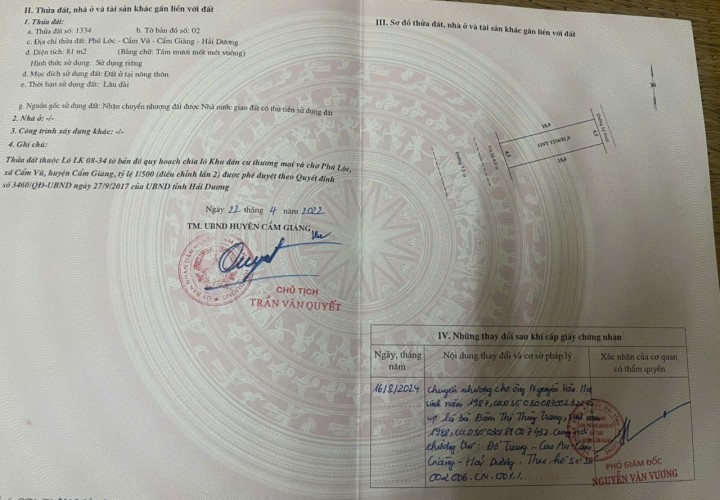 II. Thửa đất, nhà ở và tài sản khác gắn liền với đất
1. Thửa đất:
a. Thửa đất số: 1334 b. Tờ bản đồ số: 02
c. Địa chỉ thửa đất: Phú Lộc - Cẩm Vũ - Cẩm Giàng - Hải Dương
d. Diện tích: 81 m2 (Bằng chữ: Tám mươi mốt mét vuông)
Hình thức sử dụng: Sử dụng riêng
đ. Mục đích sử dụng đất: Đất ở tại nông thôn
e. Thời hạn sử dụng đất: Lâu dài
g. Nguồn gốc sử dụng đất: Nhận chuyển nhượng đất được Nhà nước giao đất có thu tiền sử dụng đất
2. Nhà ở: -/-
3. Công trình xây dựng khác: -/-
4. Ghi chú:
Thửa đất thuộc Lô LK 08-34 tờ bản đồ quy hoạch chia lô Khu dân cư thương mại và chợ Phú Lộc,
xã Cẩm Vũ, huyện Cẩm Giàng, tỷ lệ 1/500 (điều chỉnh lần 2) được phê duyệt theo Quyết định
số 3460/QĐ-UBND ngày 27/9/2017 của UBND tỉnh Hải Dương
Ngày 22 tháng 4 năm 2022
TM. UBND HUYỆN CẨM GIÀNG
Quyet
CHỦ TỊCH
TRẦN VĂN QUYẾT
III. Sơ đồ thửa đất, nhà ở và tài sản khác gắn liền với đất
18,0
4,5
ONT 1334/81,0
4,5
18,0
IV. Những thay đổi sau khi cấp giấy chứng nhận
Ngày, tháng năm
Nội dung thay đổi và cơ sở pháp lý
Xác nhận của cơ quan có thẩm quyền
16/8/2024
Chuyển nhượng cho ông Nguyễn Văn
sinh năm 1987,
vợ là bà Đàm Thị Thùy Trang,
1988,
Đỗ Trung - Cao An - Cẩm
Giàng - Hải Dương. Theo hồ sơ số
002006.CN.001.
PHÓ GIÁM ĐỐC
NGUYỄN VĂN VƯƠNG